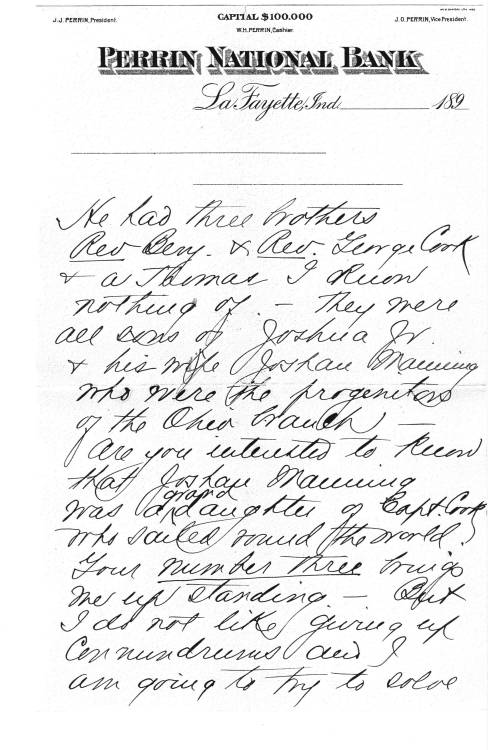 J. J. PERRIN, President.
CAPITAL $100.000
W.H. PERRIN, Cashier.
J. O. PERRIN, Vice President.
PERRIN NATIONAL BANK
La Fayette, Ind. 189
He had three brothers
Rev Benj. & Rev. George Cook
& a Thomas I know
nothing of. — They were
all sons of Joshua Jr.
& his wife Joshan Manning
who were the progenitors
of the Ohio branch —
Are you interested to know
that Joshan Manning
was a grand daughter of Capt. Cook
who sailed round the world?
Your number three brings
me up standing — But
I do not like giving up
Connundrums and I
am going to try to solve